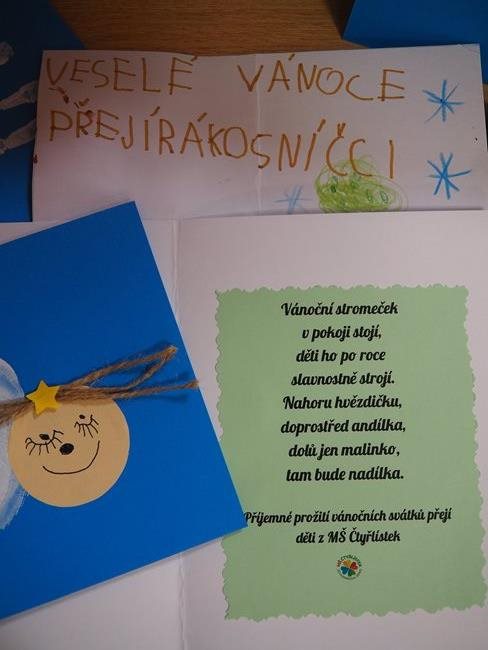 VESELÉ VÁNOCE
PŘEJÍRÁKOSNÍČCI
Vánoční stromeček
v pokoji stojí,
děti ho po roce
slavnostně strojí.
Nahoru hvězdičku,
doprostřed andílka,
dolů jen malinko,
tam bude nadílka.
Příjemné prožití vánočních svátků přejí
děti z MŠ Čtyřlístek